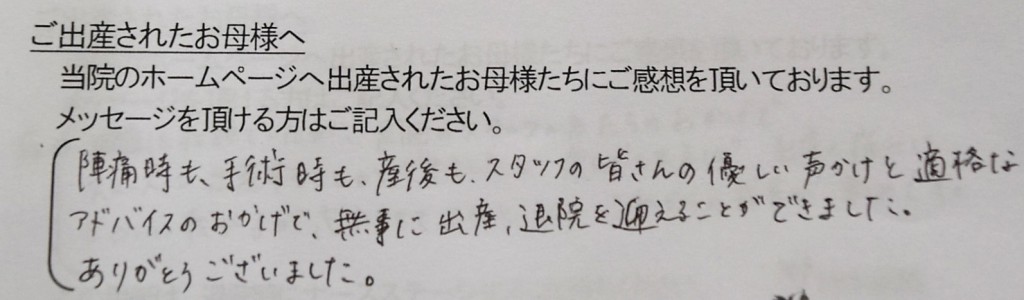 ご出産されたお母様へ
当院のホームページへ出産されたお母様たちにご感想を頂いております。
メッセージを頂ける方はご記入ください。
陣痛時も、手術時も、産後も、スタッフの皆さんの優しい声かけと適格な
アドバイスのおかげで、無事に出産、退院を迎えることができました。
ありがとうございました。